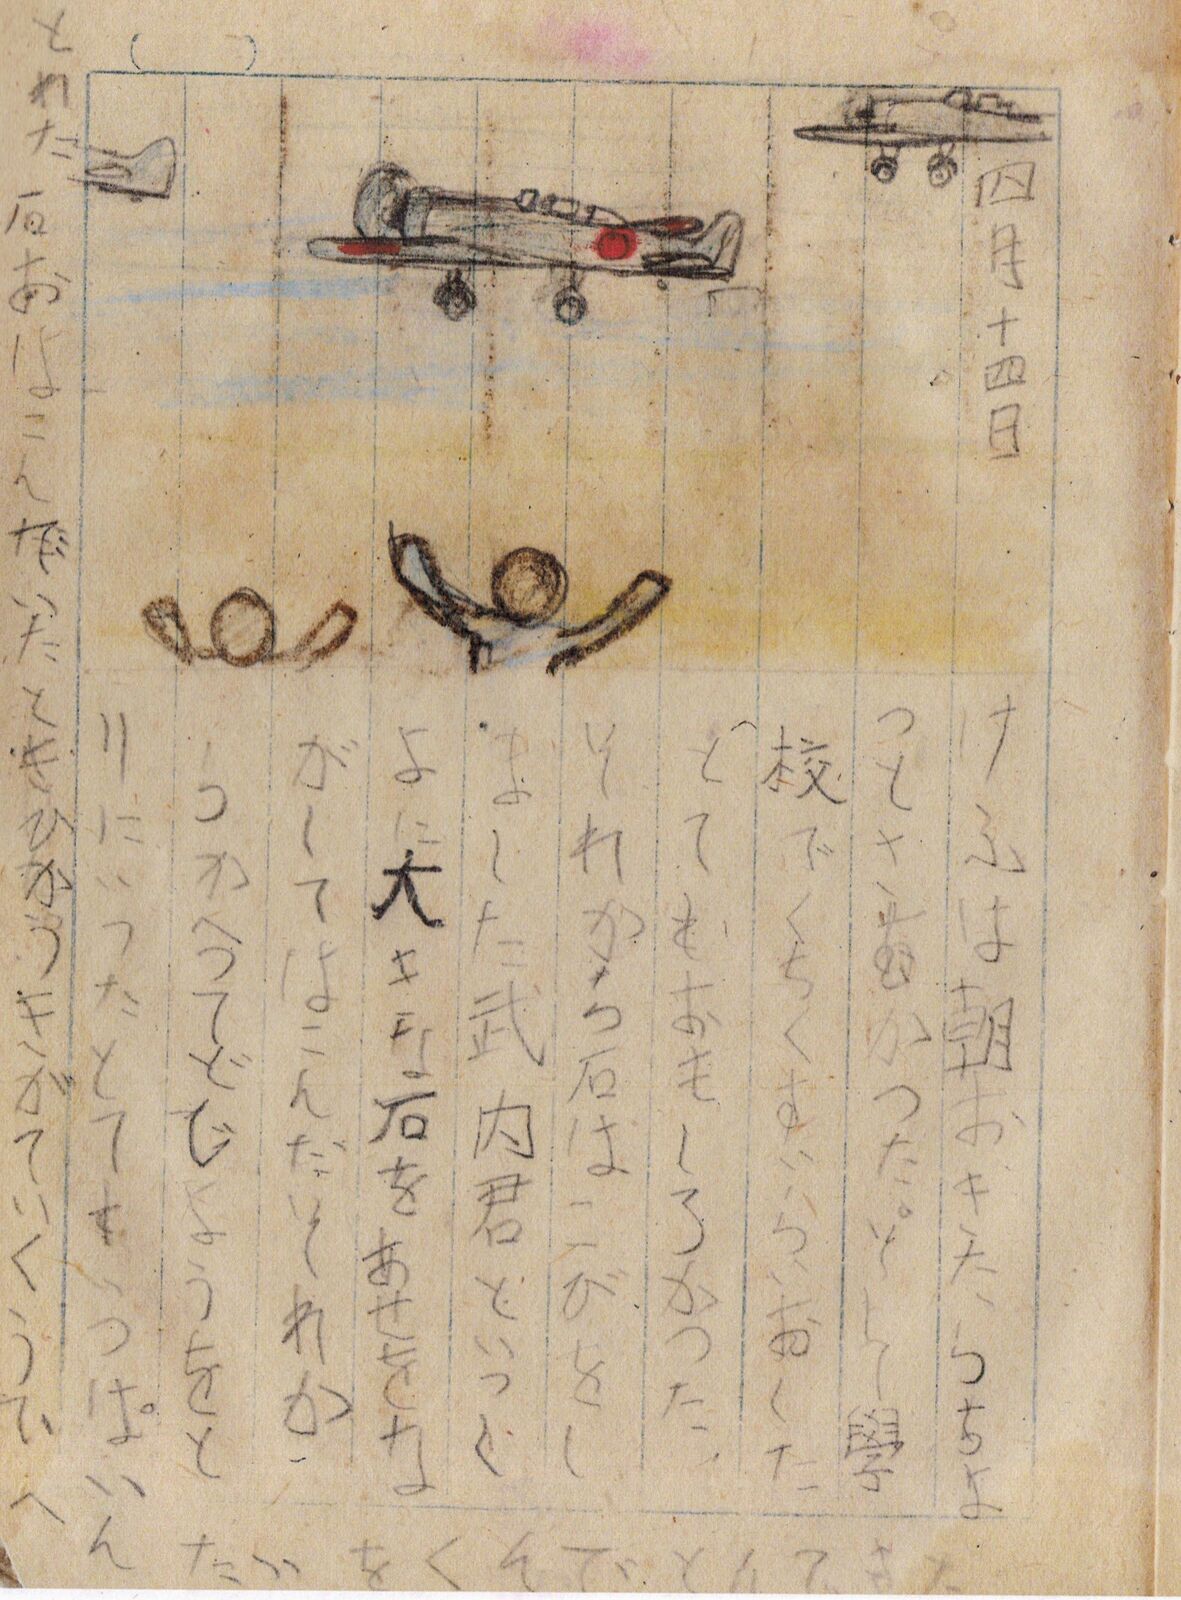 四月十四日
けふは朝おきたらちよ
つとさむかつた。そして學
校でくちくすいらいおした
とてもおもしろかつた、
それから石はこびをし
ました武内君といつし
よに大きな石をあせをな
がしてはこんだそれか
らかへつてどじようをと
りにいつたとてすいつぱいん
とれた石おはこんでいたときひかうきがていくうでへ
たいをくんでとんできた